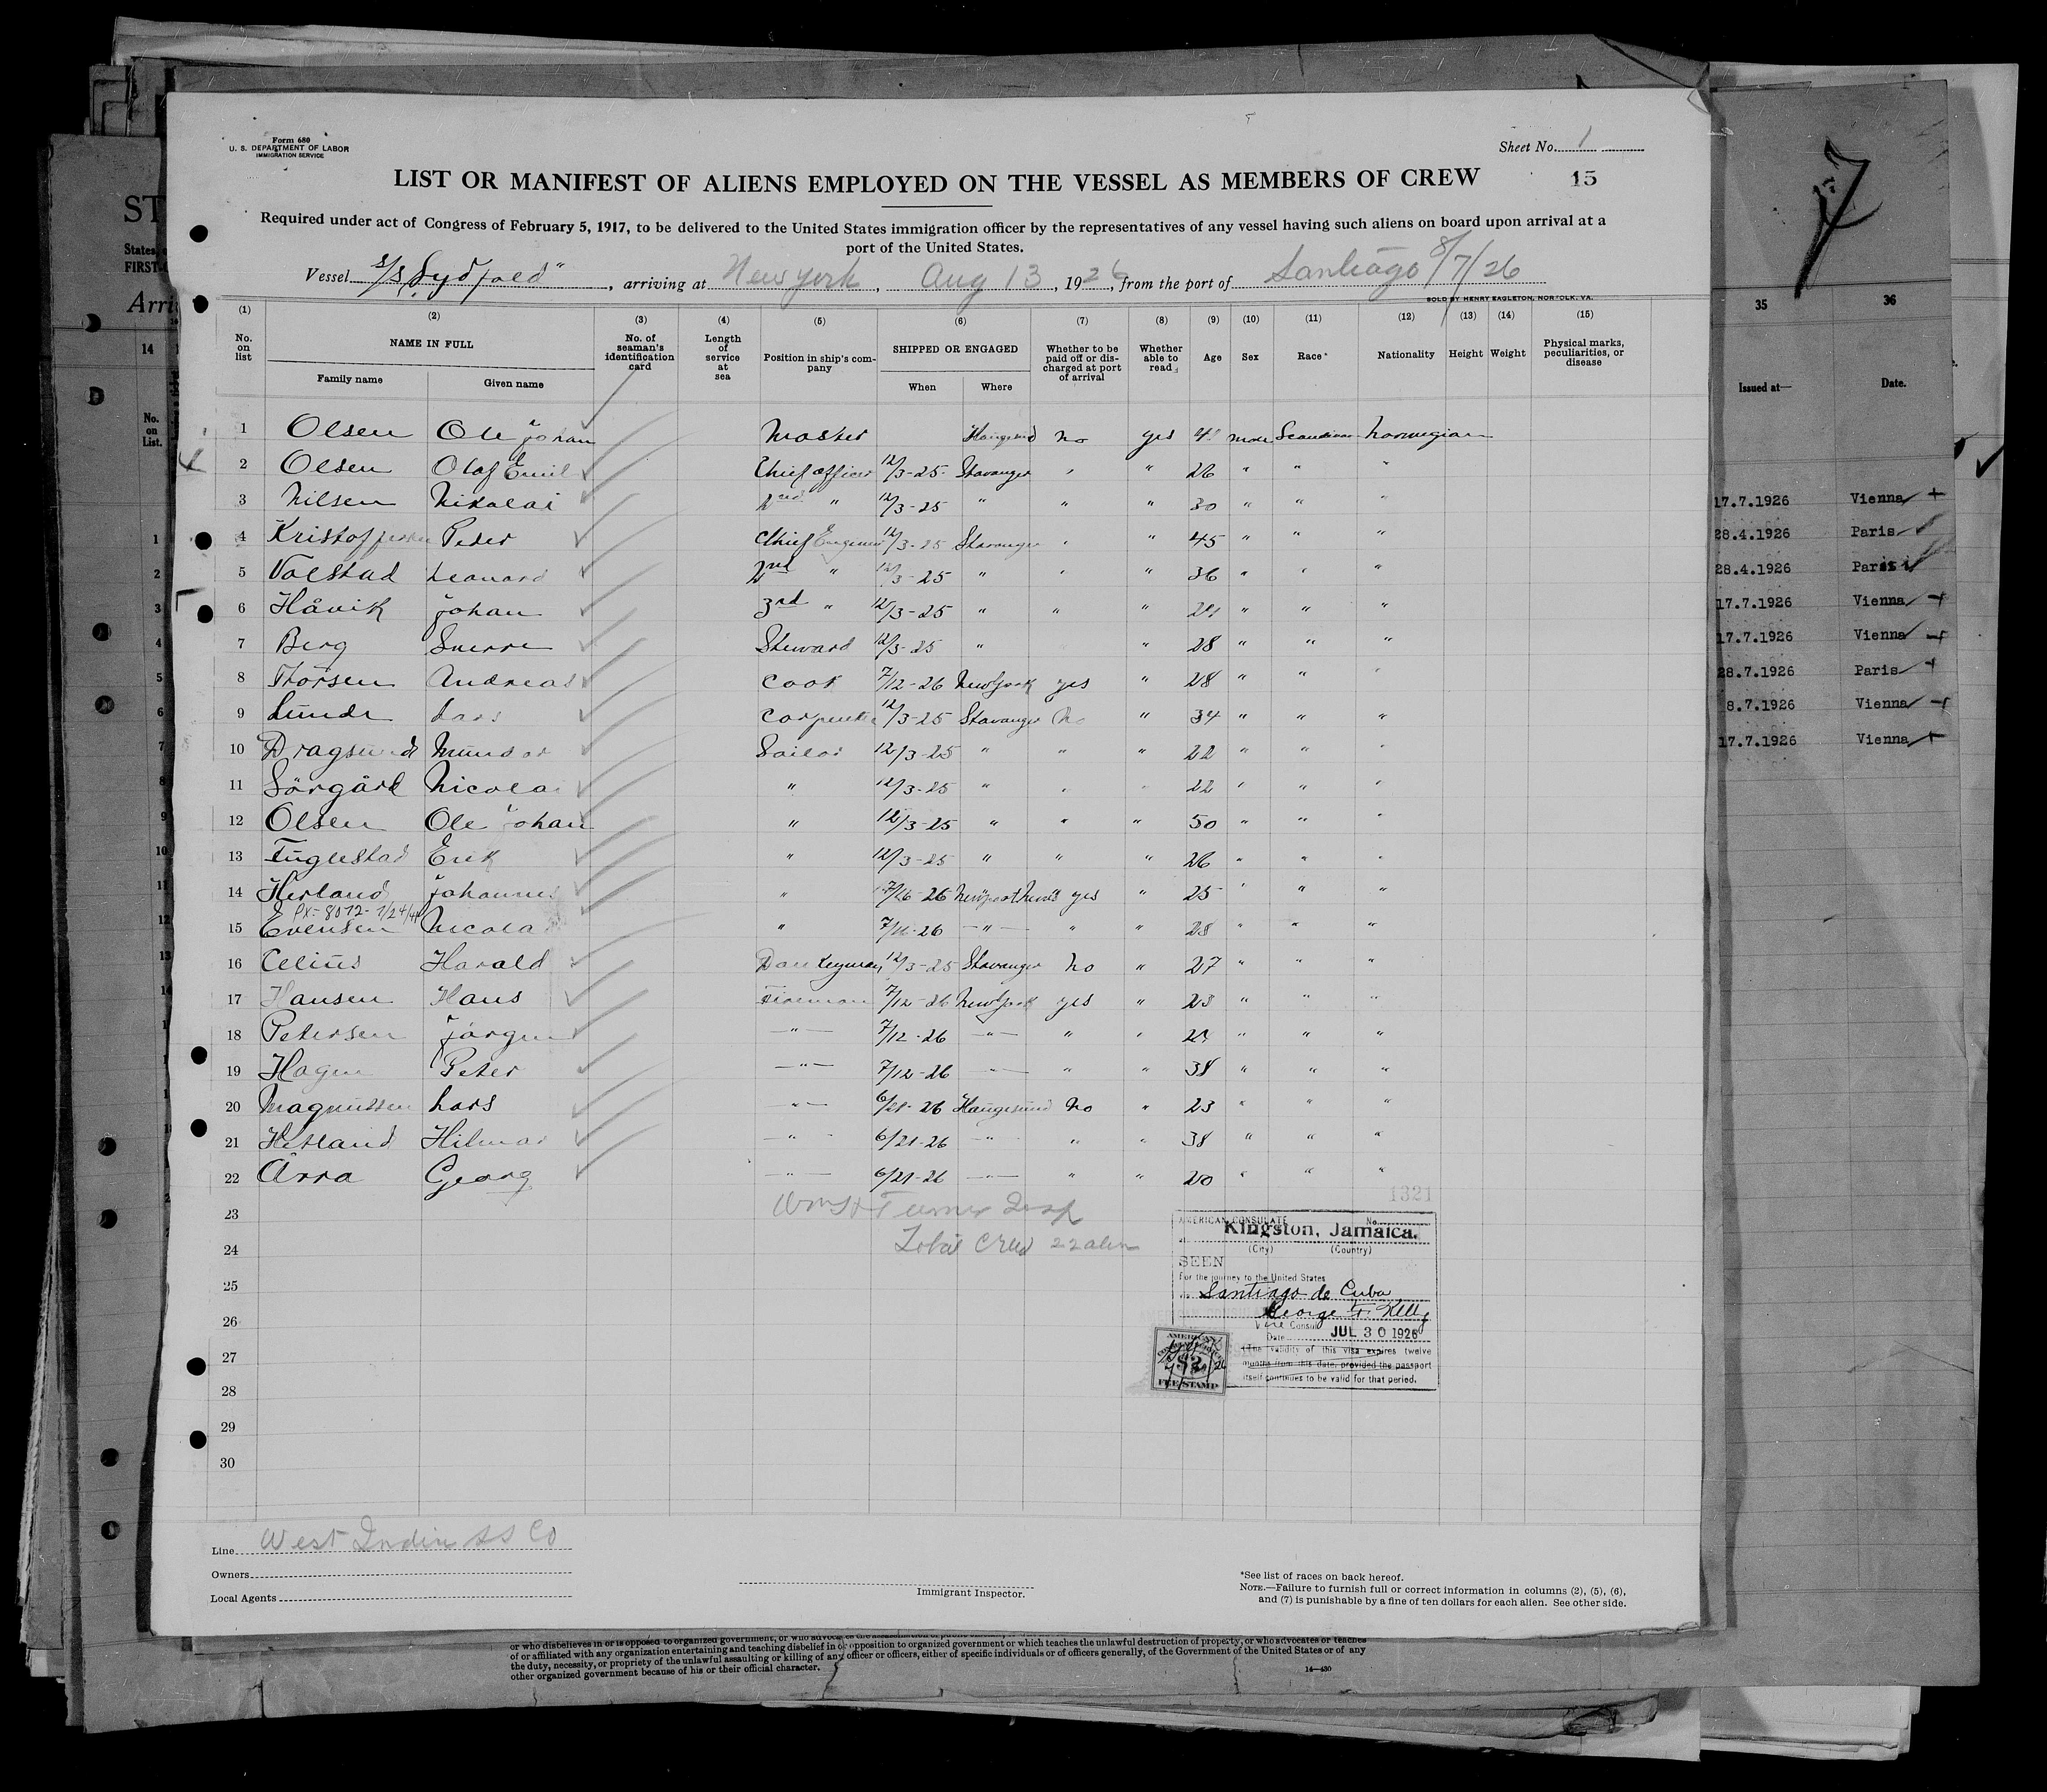 Form 680
U. S. DEPARTMENT OF LABOR
IMMIGRATION SERVICE
Sheet No. 1
LIST OR MANIFEST OF ALIENS EMPLOYED ON THE VESSEL AS MEMBERS OF CREW
15
Required under act of Congress of February 5, 1917, to be delivered to the United States immigration officer by the representatives of any vessel having such aliens on board upon arrival at a
port of the United States.
Vessel S/S "Sydfold", arriving at New York, Aug 13, 1926, from the port of Santiago 8/7/26
SOLD BY HENRY EAGLETON, NORFOLK, VA.
(1) (2) (3) (4) (5) (6) (7) (8) (9) (10) (11) (12) (13) (14) (15)
No. on list NAME IN FULL No. of seaman's identification card Length of service at sea Position in ship's company SHIPPED OR ENGAGED Whether to be paid off or discharged at port of arrival Whether able to read Age Sex Race* Nationality Height Weight Physical marks, peculiarities, or disease
Family name Given name When Where
1 Olsen Ole Johan Master Haugesund no yes male Scandinav Norwegian
2 Olsen Olaf Emil Chief officer 12/3-25 Stavanger " " 26 " " "
3 Nilsen Nikolai 2nd " 12/3-25 " " " 30 " " "
4 Kristoffersen Peder Chief Engineer 12/3-25 Stavanger " " 45 " " "
5 Volstad Leonard 2nd " 12/3-25 " " " 36 " " "
6 Håvik Johan 3rd " 12/3-25 " " " " " "
7 Berg Sverre Steward 12/3-25 " " 28 " " "
8 Thorsen Andreas Cook 7/12-26 New York yes " 28 " " "
9 Lunde Lars Carpenter 12/3-25 Stavanger No " 34 " " "
10 Dragsund Mundor Sailor 12/3-25 " " " 22 " " "
11 Sörgård Nicolai " 12/3-25 " " " 22 " " "
12 Olsen Ole Johan " 12/3-25 " " " 50 " " "
13 Fuglestad Erik " 12/3-25 " " " 26 " " "
14 Herland Johannes " 7/16-26 Newport News yes " 25 " " "
PX-8072-
15 Evensen Nicolai " 7/16-26 " " " 28 " " "
16 Celius Harald Donkeyman 12/3-25 Stavanger no " 27 " " "
17 Hansen Hans Fireman 7/12-26 New York yes " 23 " " "
18 Petersen Jörgen " 7/12-26 " " " " " "
19 Hagen Peter " 7/12-26 " " " 38 " " "
20 Magnussen Lars " 6/21-26 Haugesund no " 23 " " "
21 Hetland Hilmar " 6/21-26 " " " 38 " " "
22 Årra Georg " 6/21-26 " " " 20 " " "
23
24
25
26
27
28
29
30
Wm H Turner Insp
Total Crew 22 alien
1321
AMERICAN CONSULATE No.
Kingston, Jamaica.
(City) (Country)
SEEN
For the journey to the United States
Santiago de Cuba
George F. Kelly
Vice Consul
Date JUL 30 1926
(The validity of this visa expires twelve
months from this date, provided the passport
itself continues to be valid for that period.
AMERICAN
$2
FEE STAMP
Line West India SS Co
Owners
Local Agents
Immigrant Inspector.
*See list of races on back hereof.
NOTE.—Failure to furnish full or correct information in columns (2), (5), (6),
and (7) is punishable by a fine of ten dollars for each alien. See other side.
ST
States
FIRST-C
Arri
14
No. on List.
7
35 36
Issued at— Date.
17.7.1926 Vienna
28.4.1926 Paris
28.4.1926 Paris
17.7.1926 Vienna
17.7.1926 Vienna
28.7.1926 Paris
8.7.1926 Vienna
17.7.1926 Vienna
of or affiliated with any organization entertaining and teaching disbelief in or opposition to organized government or which teaches the unlawful destruction of property, or who advocates or teaches
the duty, necessity, or propriety of the unlawful assaulting or killing of any officer or officers, either of specific individuals or of officers generally, of the Government of the United States or of any
other organized government because of his or their official character.
14—430